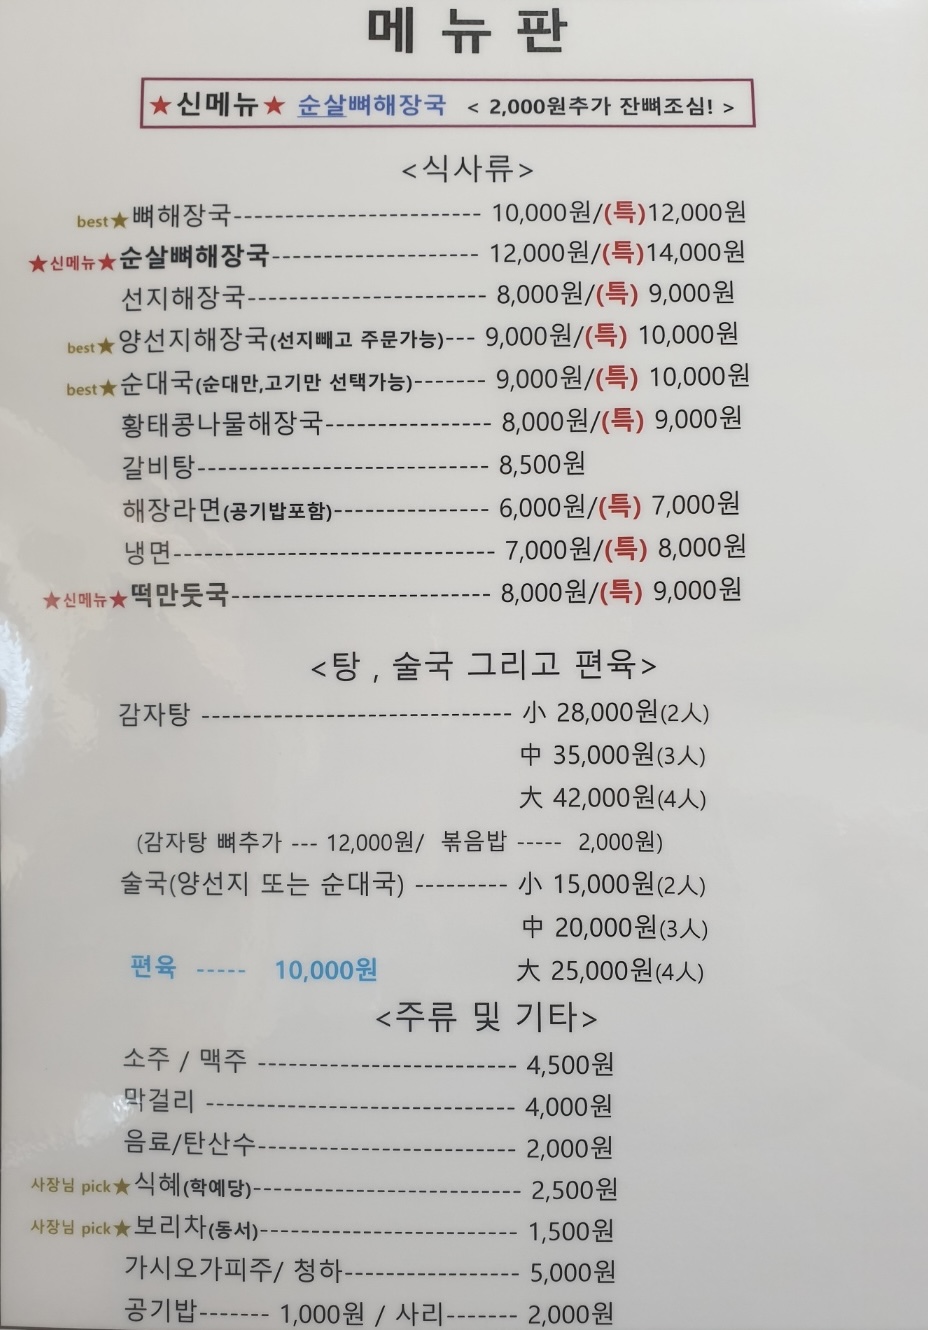 메뉴판
★신메뉴★ 순살뼈해장국 < 2,000원추가 잔뼈조심! >
<식사류>
best★뼈해장국------------------------ 10,000원/(특)12,000원
★신메뉴★순살뼈해장국-------------------- 12,000원/(특)14,000원
선지해장국----------------------- 8,000원/(특) 9,000원
best★양선지해장국(선지빼고 주문가능)--- 9,000원/(특) 10,000원
best★순대국(순대만,고기만 선택가능)------- 9,000원/(특) 10,000원
황태콩나물해장국---------------- 8,000원/(특) 9,000원
갈비탕---------------------------- 8,500원
해장라면(공기밥포함)--------------- 6,000원/(특) 7,000원
냉면------------------------------- 7,000원/(특) 8,000원
★신메뉴★떡만둣국------------------------- 8,000원/(특) 9,000원
<탕 , 술국 그리고 편육>
감자탕 ------------------------------ 小 28,000원(2人)
中 35,000원(3人)
大 42,000원(4人)
(감자탕 뼈추가 --- 12,000원/ 볶음밥 ----- 2,000원)
술국(양선지 또는 순대국) --------- 小 15,000원(2人)
中 20,000원(3人)
편육 ----- 10,000원 大 25,000원(4人)
<주류 및 기타>
소주 / 맥주 ------------------------- 4,500원
막걸리 ------------------------------ 4,000원
음료/탄산수------------------------- 2,000원
사장님 pick★식혜(학예당)-------------------------- 2,500원
사장님 pick★보리차(동서)------------------------- 1,500원
가시오가피주/ 청하----------------- 5,000원
공기밥------- 1,000원 / 사리------- 2,000원